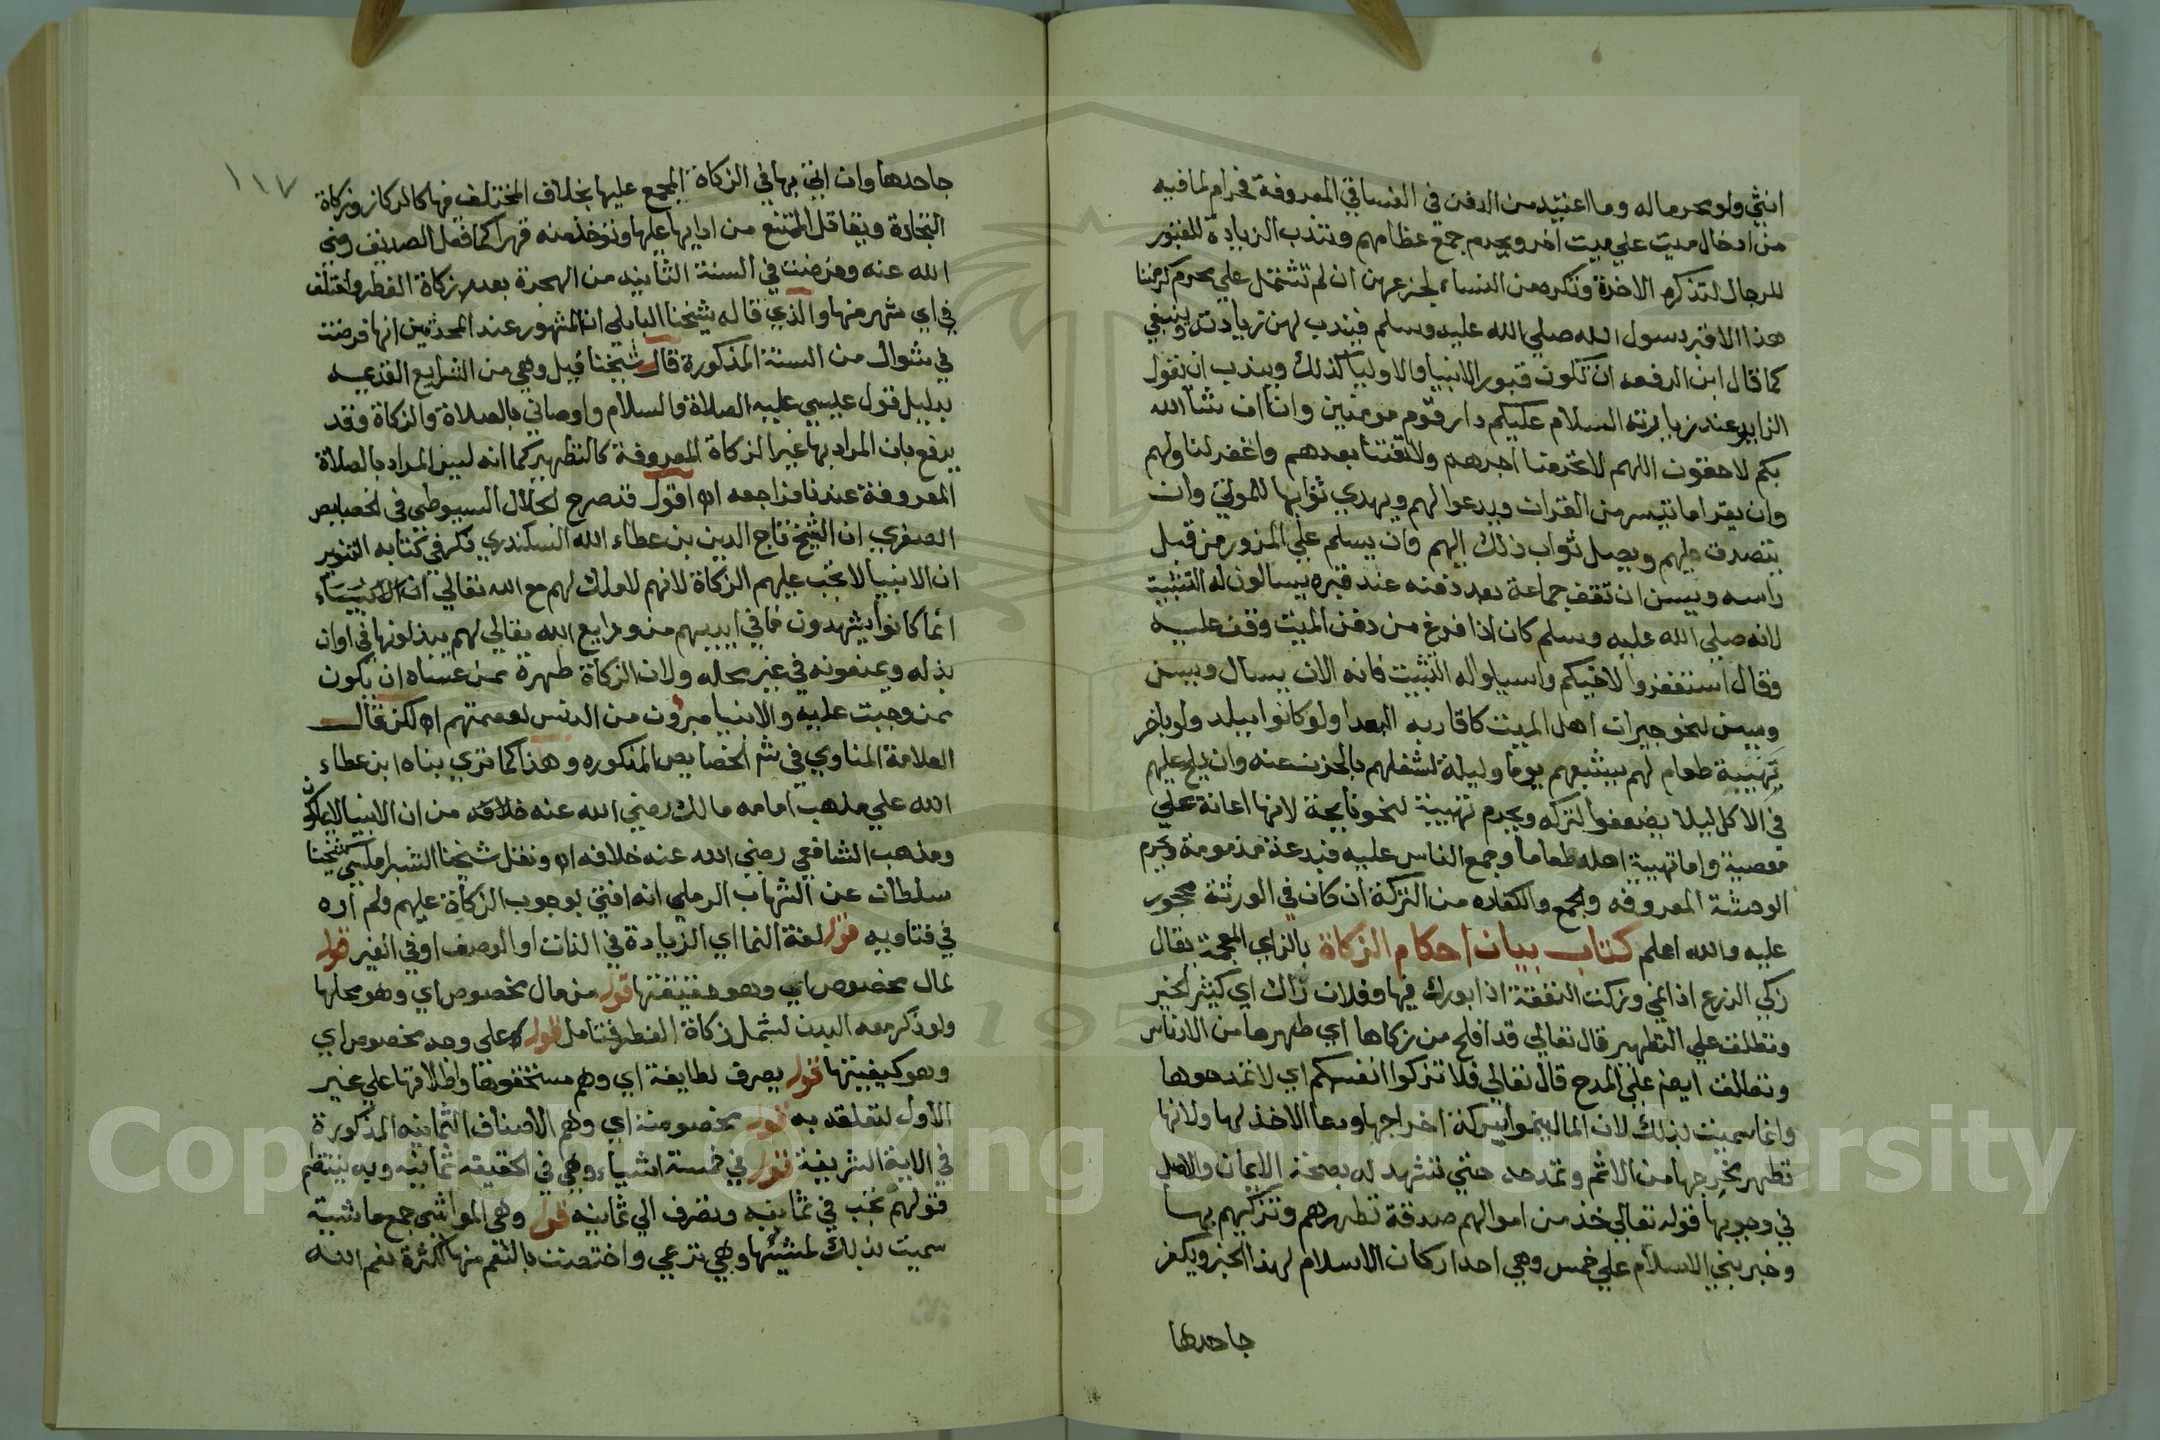 انثي ولو محرما له وما اعتيد من الدفن في الفساقي المعروفة فحرام لما فيه
من ادخال ميت علي ميت اخر ويحرم جمع عظامهم وتندب الزيادة للقبور
للرجال لتذكره الاخرة وتكره من النساء لجزعهن ان لم تشتمل علي محرم
هذا الا قبر رسول الله صلي الله عليه وسلم فيندب لهن زيارته وينبغي
كما قال ابن الرفعه ان تكون قبور الانبيا والاوليا كذلك ويندب ان يقول
الزاير عند زيارته السلام عليكم دار قوم مومنين وانا ان شا الله
بكم لاحقون اللهم لا تحرمنا اجرهم ولا تفتنا بعدهم واغفر لنا ولهم
وان يقرا ما تيسر من القران ويدعوا لهم ويهدي ثوابها للموتي وان
يتصدق عليهم ويصل ثواب ذلك اليهم وان يسلم علي المزور من قبل
راسه ويسن ان تقف جماعة بعد دفنه عند قبره يسالون له التثبيت
لانه صلي الله عليه وسلم كان اذا فرغ من دفن الميت وقف عليه
وقال استغفروا لاخيكم واسيلوا له التثبيت فانه الان يسال ويسن
ويسن لنحو جيران اهل الميت كاقاربه البعدا ولو كانوا ببلد ولو باخر
تهييية طعام لهم يشبعهم يوما وليلة لشغلهم بالحزن عنه وان يلح عليهم
في الاكل ليلا يضعفوا لتركه ويحرم تهيية لنحو نايحة لانها اعانة علي
معصية واما تهيية اهله طعاما وجمع الناس عليه فبدعة مذمومة ويحرم
الوحشة المعروفه والجمع والكفاره من التركة ان كان في الورثة محجور
عليه والله اعلم كتاب بيان احكام الزكاة بالزاي المعجمة يقال
زكي الزرع اذا نمي وزكت النفقة اذا بورك فيها وفلان زاك اي كثير الخير
وتطلق علي التطهير قال تعالي قد افلح من زكاها اي طهرها من الادناس
وتطلق ايضا علي المدح قال تعالي فلا تزكوا انفسكم اي لا تمدحوها
وانما سميت بذلك لان المال ينموا ببركة اخراجها ودعا الاخذ لها ولانها
تطهر مخرجها من الاثم وتمدحه حتي تشهد له بصحة الايمان والاصل
في وجوبها قوله تعالي خذ من اموالهم صدقة تطهرهم وتزكيهم بها
وخبر بني الاسلام علي خمس وهي احد اركان الاسلام لهذا الخبر ويكفر
جاحدها
١١٧
جاحدها وان اتي بها في الزكاة المجمع عليها بخلاف المختلف فيها كالركاز وزكاة
التجارة ويقاتل الممتنع من ادايها عليها وتوخذ منه قهرا كما فعل الصديق رضي
الله عنه وفرضت في السنة الثانيه من الهجرة بعد زكاة الفطر واختلف
في اي شهر منها والذي قاله شيخنا البابلي ان المشهور عند المحدثين انها فرضت
في شوال من السنة المذكورة قال شيخنا قيل وهي من الشرايع القديمه
بدليل قول عيسي عليه الصلاة والسلام واوصاني بالصلاة والزكاة وقد
يدفع بان المراد بها غير الزكاة المعروفة كالتطهير كما انه ليس المراد بالصلاة
المعروفة عندنا فراجعه اه اقول قد صرح الجلال السيوطي في الخصايص
الصغري ان الشيخ تاج الدين بن عطاء الله السكندري ذكر في كتابه التنوير
ان الانبيا لا تجب عليهم الزكاة لانهم لا ملك لهم مع الله تعالي ان الانبياء
انما كانوا يشهدون ما في ايديهم من ودايع الله تعالي لهم يبذلونها في اوان
بذله ويمنعونه في غير محله ولان الزكاة طهرة ممن عساه ان يكون
ممن وجبت عليه والانبيا مبرؤن من الدنس لعصمتهم اه لكن قال
العلامة المناوي في شرح الخصايص المذكوره وهذا كما تري بناه ابن عطاء
الله علي مذهب امامه مالك رضي الله عنه من ان الانبيا لا يملكون
ومذهب الشافعي رضي الله عنه خلافه اه ونقل شيخنا الشبراملسي شيخنا
سلطان عن الشهاب الرملي انه افتي بوجوب الزكاة عليهم ولم اره
في فتاويه قوله لغة النما اي الزيادة في الذات او الوصف او في الغير قوله
لمال مخصوص اي وهو حقيقتها قوله من مال مخصوص اي وهو محلها
ولو ذكر معه البدن لشمل زكاة الفطر فتامل قوله علي وجه مخصوص اي
وهو كيفيتها قوله يصرف لطايفة اي وهم مستحقوها واطلاقها علي غير
الاول لتعلقه به قوله مخصوصة اي وهم الاصناف الثمانيه المذكورة
في الاية الشريفة قوله في خمسة اشياء وهي في الحقيقه ثمانيه وبه ينتظم
قولهم تجب في ثمانيه وتصرف الي ثمانيه قوله وهي المواشي جمع ماشية
سميت بذلك لمشيتها وهي ترعي واختصت بالنعم منها لكثرة نعم الله
Copyright © King Saud University
195